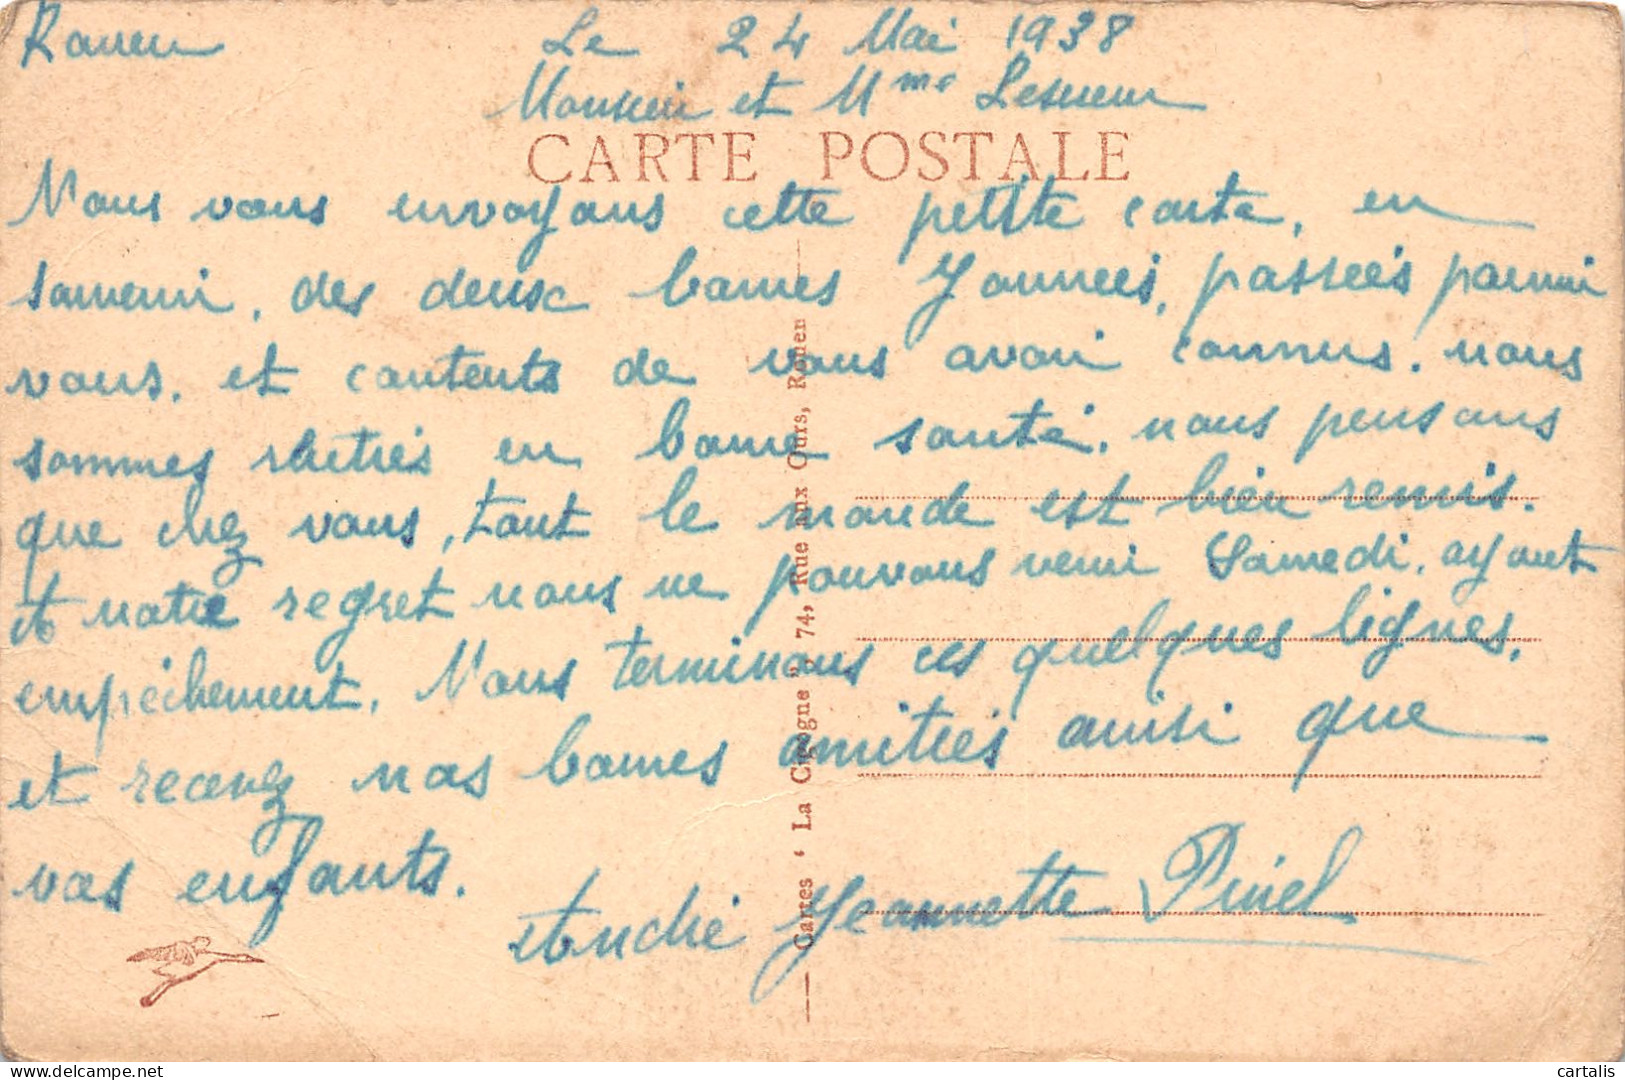 Rouen Le 24 Mai 1938
Monsieur et Mme Lesueur
CARTE POSTALE
Nous vous envoyons cette petite carte, en
souvenir, des deux bonnes Journées, passées parmi
vous. et contents de vous avoir connus. nous
sommes rentrés en bonne santé. nous pensons
que chez vous, tout le monde est bien remis.
et notre regret nous ne pouvons venir Samedi. ayant
empêchement. Nous terminons ces quelques lignes,
et recevez nos bonnes amitiés ainsi que
vos enfants.
André Jeannette Pinel
Cartes " La Cigogne " 74, Rue aux Ours, Rouen
cartalis